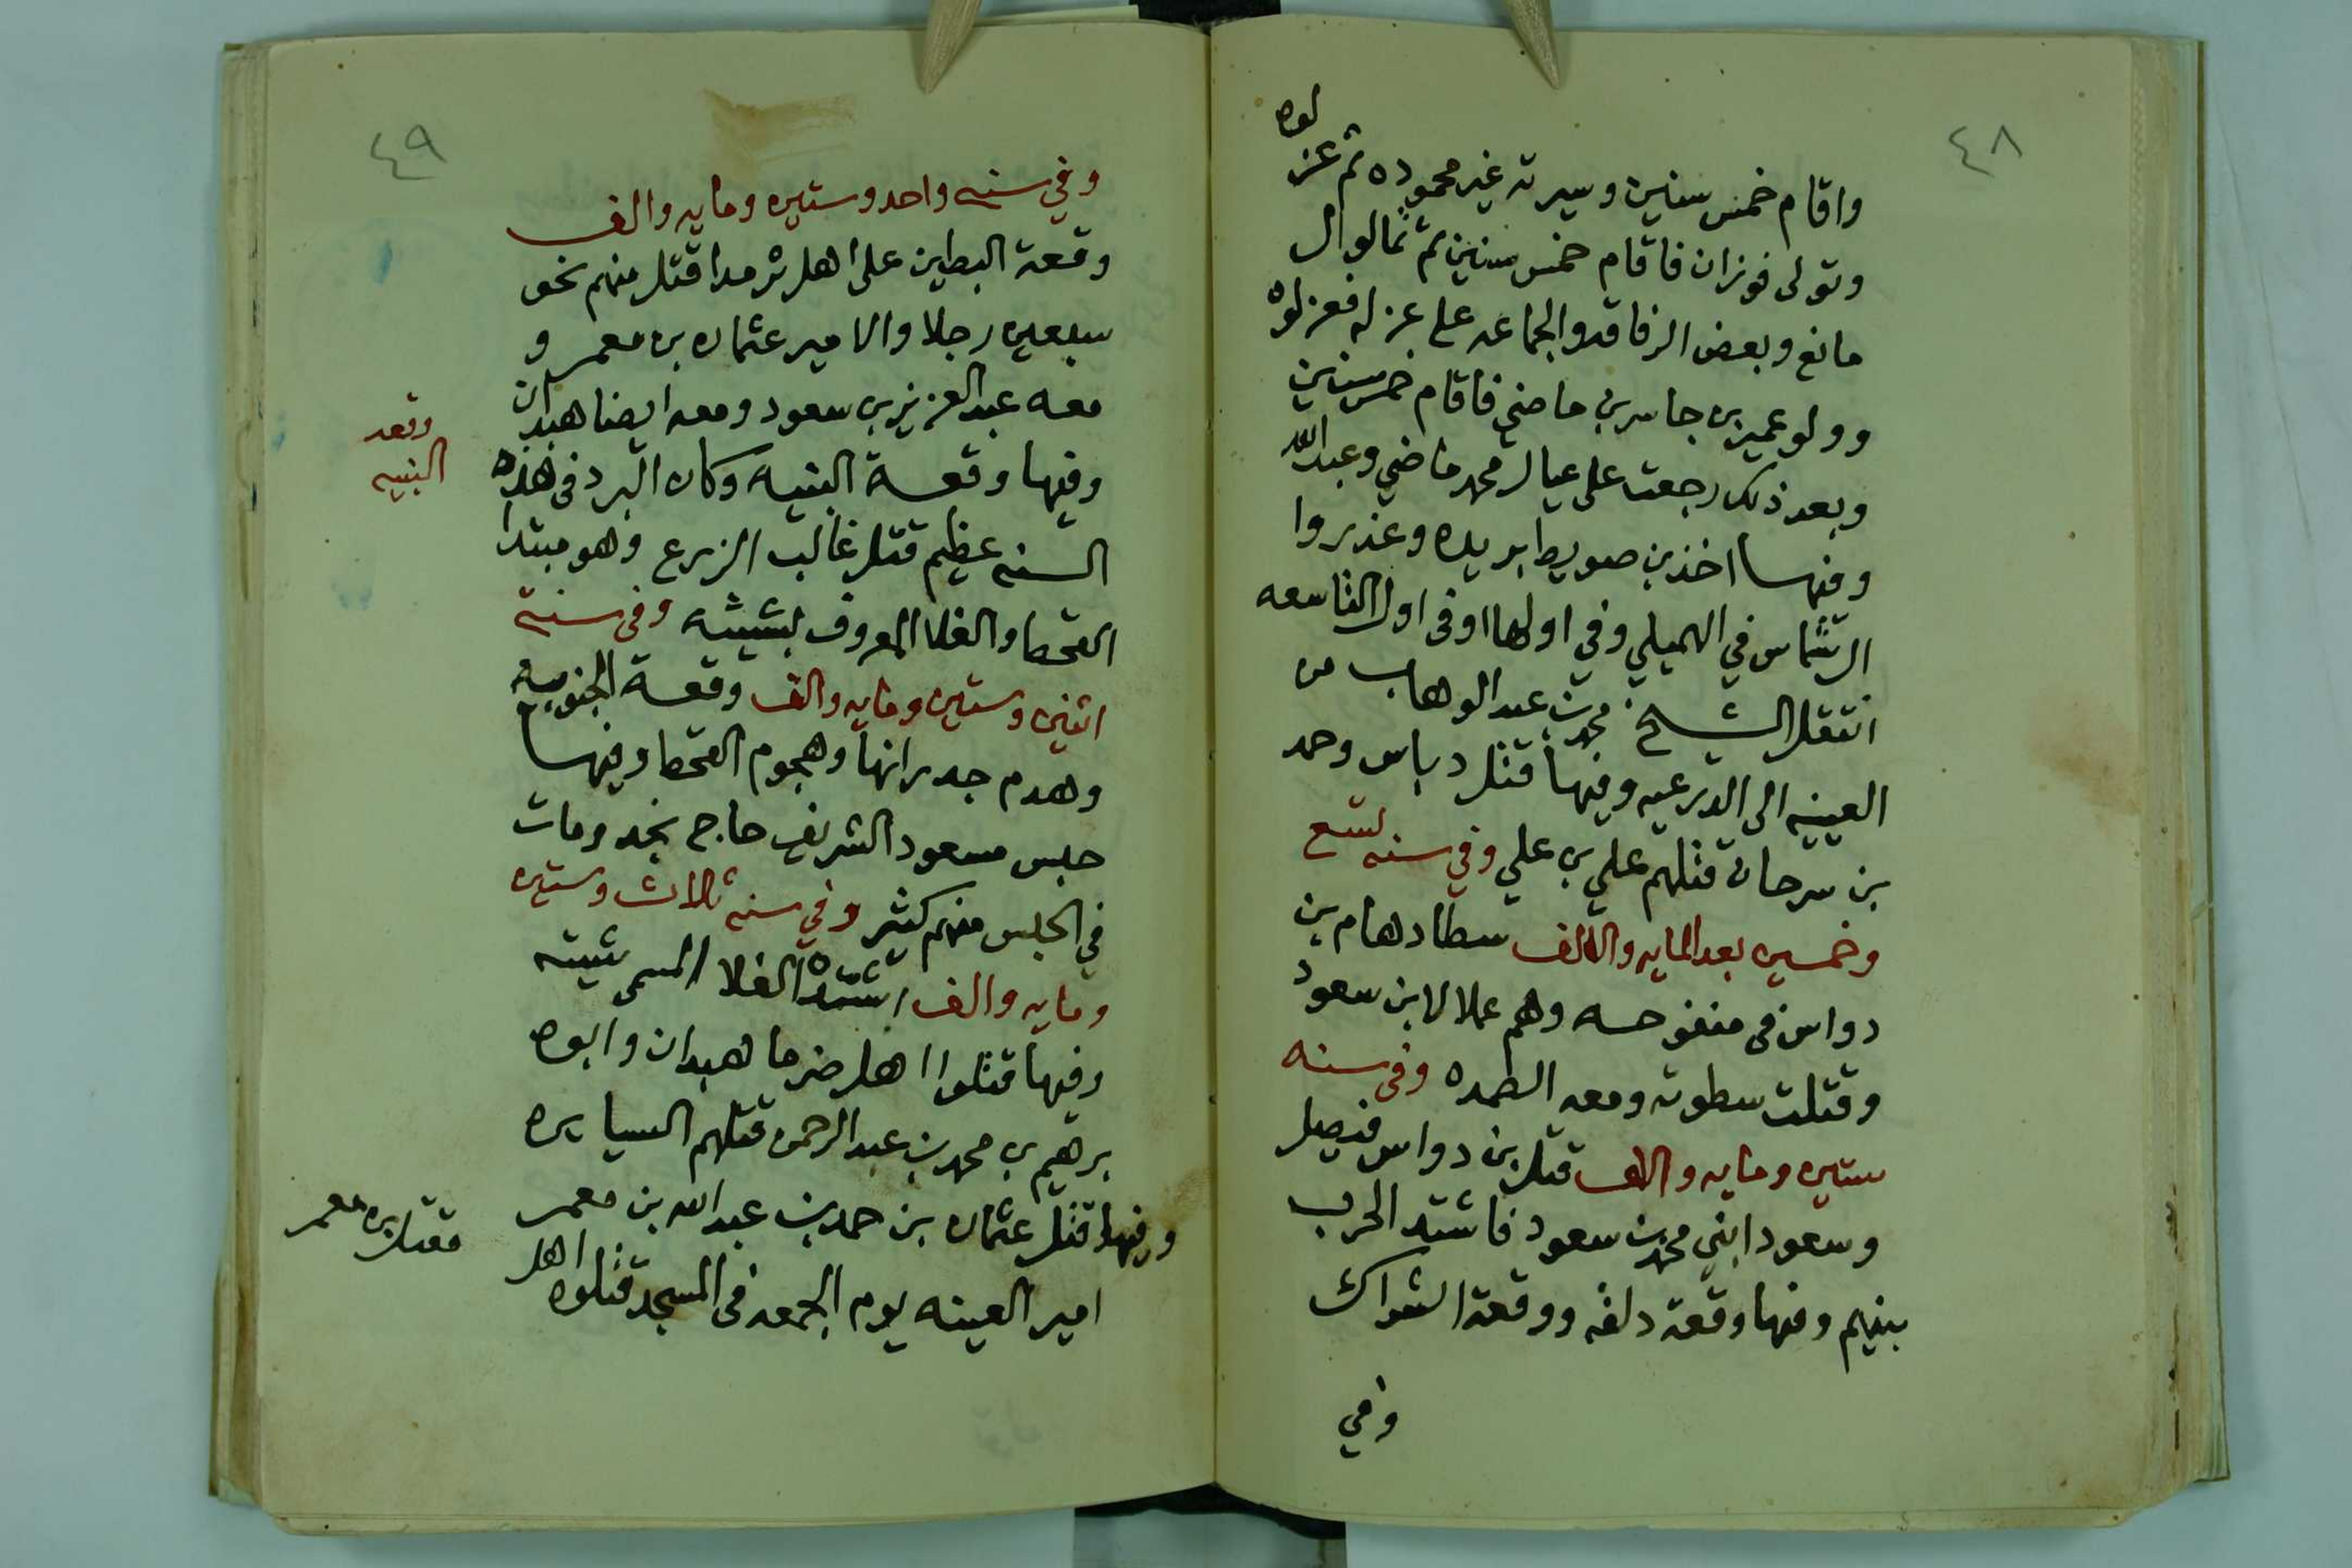 ٤٨
واقام خمس سنين وسيرته غير محموده ثم عزلوه
وتولى فوزان فاقام خمس سنين ثم تمالوا ال
مانع وبعض الرفاقه والجماعه على عزله فعزلوه
وولو عمير بن جاسر بن ماضي فاقام خمس سنين
وبعد ذلك رجعت على عيال محمد ماضي وعبدالله
وفيها اخذ بن صويط بريده وغذروا
الرشماس في الهميلي وفي اولها اوفى اول التاسعه
انتقل الشيخ محمد بن عبد الوهاب من
العيينه الى الدرعيه وفيها قتل دباس وحمد
بن سرحان قتلهم علي بن علي وفي سنه تسع
وخمسين بعد المايه والالف سطا دهام بن
دواس في منفوحه وهم عملا لابن سعود
وقتلت سطوته ومعه الظمده وفي سنه
ستين ومايه والالف قتل بن دواس فيصل
وسعود ابني محمد بن سعود فاشتد الحرب
بينهم وفيها وقعة دلقه ووقعة الشراك
وفي
٤٩
وفي سنه واحد وستين ومايه والف
وقعة البطين على اهل ثرمدا قتل منهم نحو
سبعين رجلا والامير عثمان بن معمر و
معه عبد العزيز بن سعود ومعه ايضا هبدان
وفيها وقعة البنيه وكان البرد في هذه
السنه عظيم قتل غالب الزرع وهو مبتدا
القحط والغلا المعروف بشيته وفي سنة
اثنين وستين ومايه والف وقعة الجنوبية
وهدم جدرانها وهجوم القحط وفيها
حبس مسعود الشريف حاج نجد ومات
في الحبس منهم كثير وفي سنه ثلاث وستين
ومايه والف اشتد الغلا المسمى شيته
وفيها قتلوا اهل ضرما هبدان وابوه
برهيم بن محمد بن عبد الرحمن قتلهم السيايره
وفيها قتل عثمان بن حمد بن عبد الله بن معمر
امير العينه يوم الجمعه في المسجد قتلوه اهل
وقعه
البنيه
مقتل بن معمر